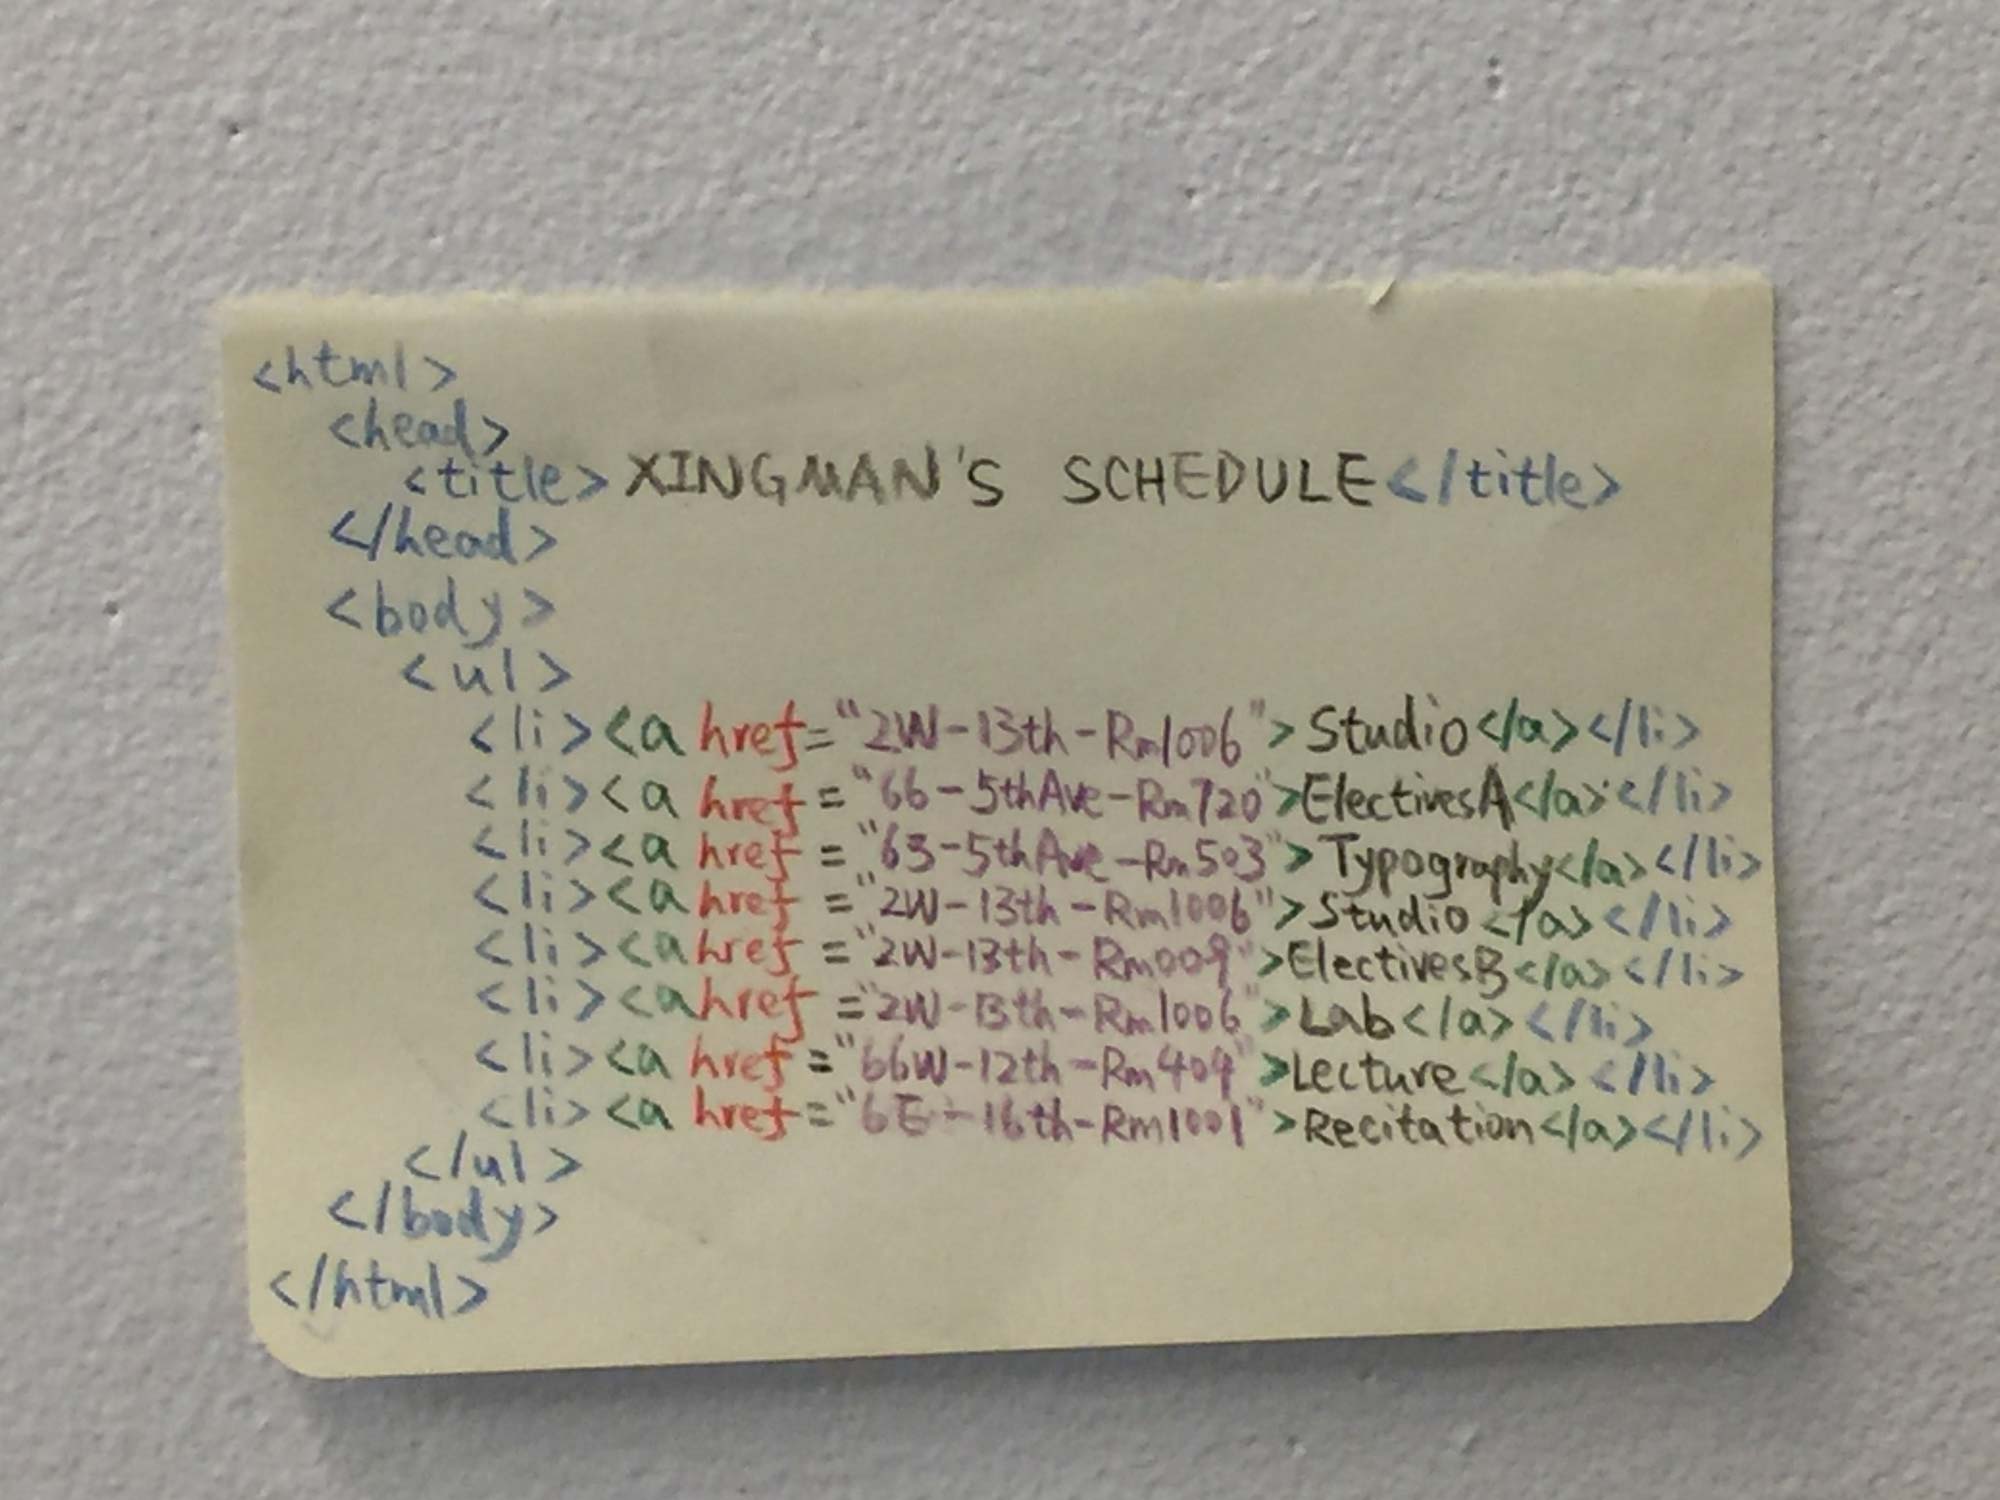 <html>
<head>
<title>XINGMAN'S SCHEDULE</title>
</head>
<body>
<ul>
<li><a href="2W-13th-Rm1006">Studio</a></li>
<li><a href="66-5thAve-Rm720">ElectivesA</a></li>
<li><a href="63-5thAve-Rm503">Typography</a></li>
<li><a href="2W-13th-Rm1006">Studio</a></li>
<li><a href="2W-13th-Rm009">ElectivesB</a></li>
<li><a href="2W-13th-Rm1006">Lab</a></li>
<li><a href="66W-12th-Rm404">Lecture</a></li>
<li><a href="6E-16th-Rm1001">Recitation</a></li>
</ul>
</body>
</html>